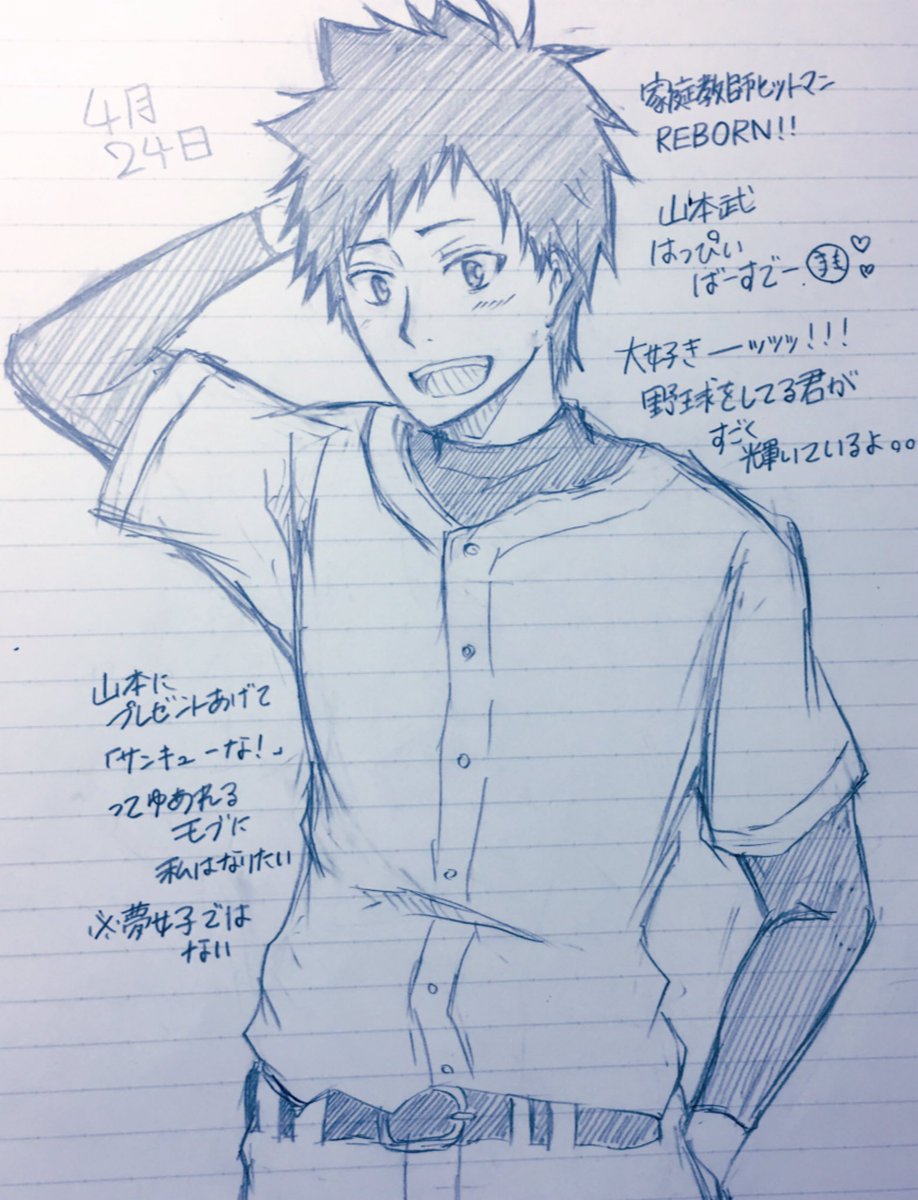 4月
24日
家庭教師ヒットマン
REBORN!!
山本武
はっぴぃ
ばーすでー
大好きーッッッ!!!
野球をしてる君が
すごく
輝いているよ。。
山本に
プレゼントあげて
「サンキューな!」
ってゆあれる
モブに
私はなりたい
※夢女子では
ない